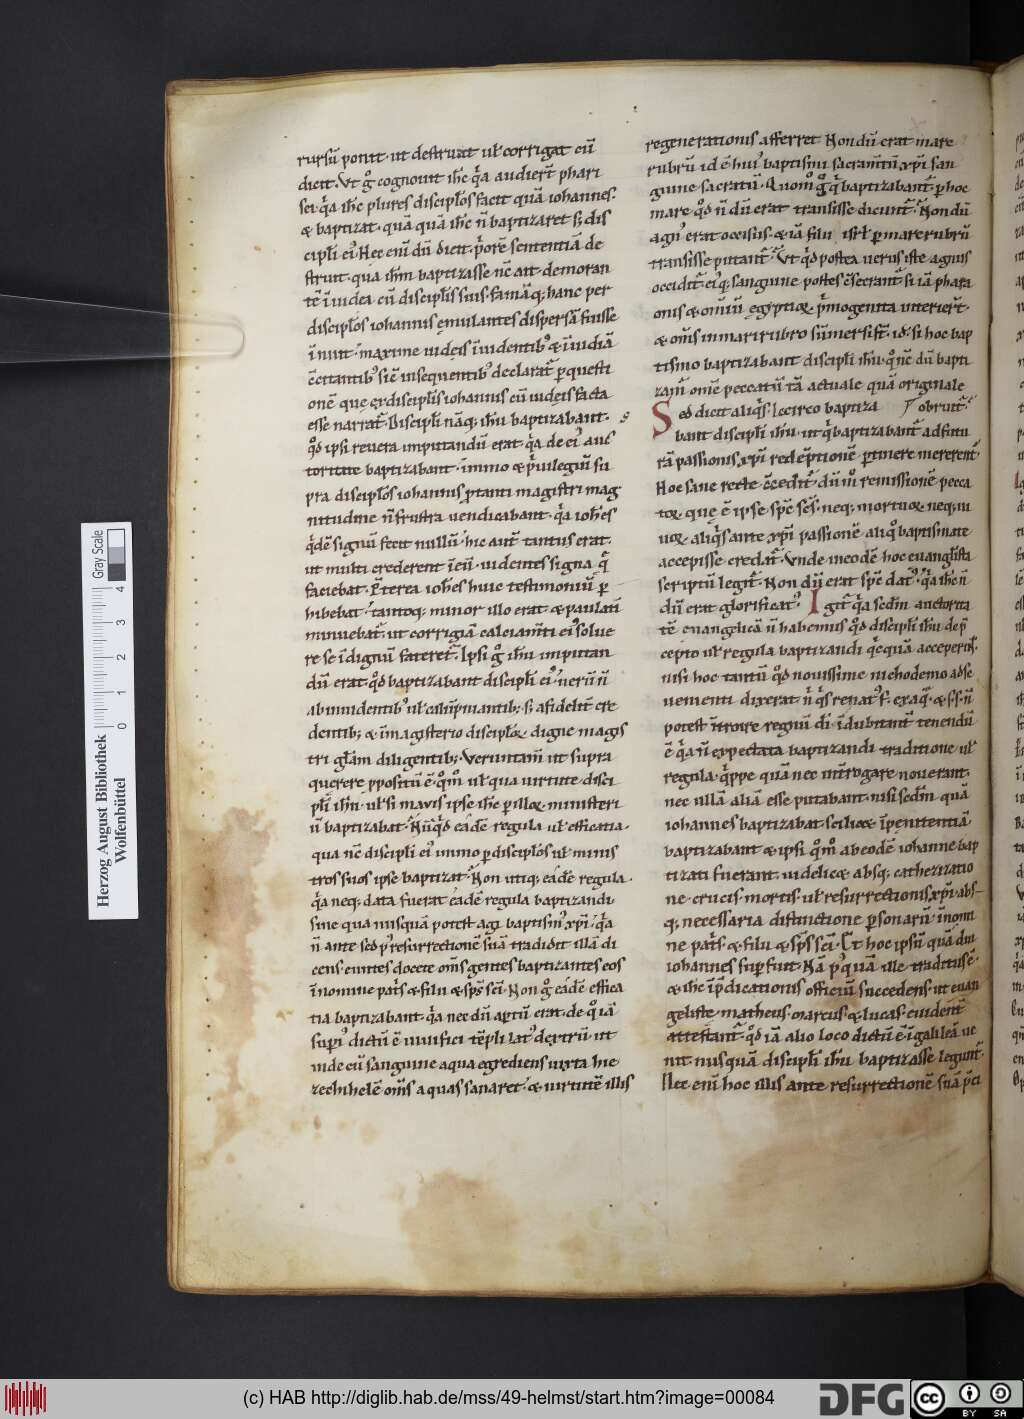 rursū ponit · ut destruat ul' corrigat cū
dicit. Ut g° cognouit ihc̄ q̇a audierт̄ phari
sei · q̇a ihc̄ plures discipl'os facit quā iohannes ·
& baptizat · quā quā ihc̄ n̄ baptizaret s; dis
cipl'i ei'. Hec enī dū dicit · p̄orē sententiā de
struit · quia ihm̄ baptizasse nc̄ ait · demoran
tē ī iudea cū discipl'is suis · famāq; hanc per
discipl'os iohannis ęmulantes dispersā fuisse
esse narrat̄. Discipl'i nāq; ihū baptizabant ·
q°d ipsi reuera imputandū erat · q̇a de ei' auc
toritate baptizabant · immo & p̄uilegiū su
pra discipl'os iohannis p̄tanti magistri mag
nitudine n̄ frustra uendicabant · q̇a ioh'es
q̇dē signū fecit nullū · hic aut̄ tantus erat ·
ut multi crederent ī eū · uidentes signa q̄
faciebat · P̄terea ioh'es huic testimoniū p
hibebat · tantoq; minor illo erat & paulatī
minuebat̄ · ut corrigiā calciam̄ti ei' solue
re se īdignū fateret̄. Ipsi g° ihū imputan
dū erat · q°d baptizabant discipl'i ei' · uerū n̄
dentib; & ī magisterio discipl'oꝝ digne magis
tri gl'am diligentib;. Veruntam̄ ut supra
querere ppositū ē · q°m° ul' qua uirtute disci
pl'i ihū · ul' si mauis ipse ihc̄ p illoꝝ ministeri
ū baptizabat · Nūq̇d eadē regula ul' efficatia ·
qua nc̄ discipl'i ei' immo p discipl'os ul' minis
tros suos ipse baptizat̄ · Non utiq; eadē regula ·
q̇a neq; data fuerat eadē regula baptizandi
sine qua nusquā potest agi baptism' xp̄i · q̇a
n̄ ante sed p' resurrectionē suā tradidit illā di
cens · euntes docete om̄s gentes baptizantes eos
ī nomine pat̄s & filii & sp̄s sc̄i · Non g° eadē effica
tia baptizabant · q̇a nec dū aptū erat · de q° iā
supi' dictū ē uiuifici tēpli lat' dextrū · ut
inde cū sanguine aqua egrediens iuxta hie
zechihelē om̄s aquas sanaret · & uirtutē illis
regenerationis afferret Nondū erat mare
rubrū id ē hui' baptismi sacram̄tū xp̄i san
guine sacratū · Quom° g° q̇ baptizabant̄ p hoc
mare · q°d n̄ dū erat transisse dicunt̄ · Nondū
agn' erat occisus · & iā filii isr̄l p mare rubrū
transisse putant̄ · Ut q̇d postea uerus iste agnus
occidit̄ · ei'q; sanguine postes c̄secrant̄ · si iā phara
onis & om̄iū egyptioꝝ p̄mogenita interiert̄ ·
& om̄s in mari rubro sūmersi st̄ · id · si hoc bap
tismo baptizabant discipl'i ihū · q° nc̄ dū bapti
zam̄ · omē peccatū tā actuale quā originale
Sed dicit aliq̇s · Iccirco baptiza obruit̄ ·
bant discipl'i ihū · ut q̇ baptizabant̄ ad futu
rā passionis xp̄i redēptionē ptinere mererent̄
Hoc sane recte c̄cedit̄ · dū m° remissionē pecca
toꝝ · quę ē ipse sp̄c sc̄s · neq; mortuoꝝ neq; ui
uoꝝ aliq̇s ante xp̄i passionē aliq° baptismate
accepisse credat̄ · Unde in eodē hoc euangl'ista
scriptū legit̄ · Non dū erat sp̄c dat' · q̇a ihc̄ n̄
dū erat glorificat' · Igit̄ q̇a sedm̄ auctorita
tē euangelicā n̄ habemus q°d discipl'i ihū de p̄
cepto ul' regula baptizandi q̇cquā acceperīt ·
nisi hoc tantū q°d nouissime nichodemo ad se
uenienti dixerat
potest n̄troire regnū dī · īdubitant̄ tenendū
ē q̇a n̄ expectata baptizandi traditione ul'
regula · q̇ppe quā nec int̄rogare nouerant ·
nec ullā aliā esse putabant · nisi sedm̄ quā
iohannes baptizabat · scilicet īpenitentiā ·
baptizabant & ipsi · q°m° ab eodē iohanne bap
tizati fuerant · uidelicet absq; catherizatio
ne · crucis · mortis · ul' resurrectionis xp̄i · abs
q; necessaria distinctione psonarū · īnomi
ne pat̄s & filii & sp̄s sc̄i · Et hoc ipsū quā diu
iohannes supfuit · Nā p'quā ille traditus ē ·
& ihc̄ īp̄dicationis officiū succedens · ut euan
geliste matheus · marcus & lucas · euident̄
attestant̄ · q°d iā alio loco dictū ē · ī galileā ue
nit · nusquā discipl'i ihū baptizasse legunt̄ ·
Nec enī hoc illis ante resurrectionē suā p̄ci
Herzog August Bibliothek
Wolfenbüttel
0 1 2 3 4
Gray Scale
(c) HAB http://diglib.hab.de/mss/49-helmst/start.htm?image=00084
DFG
cc
BY SA